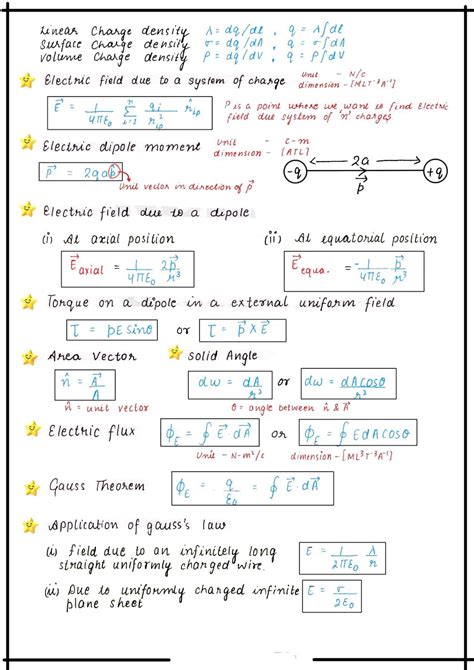 Linear Charge density λ = dq/dl , q = λ∫dl
Surface Charge density σ = dq/dA , q = σ∫dA
Volume Charge density ρ = dq/dV , q = ρ∫dV
Electric field due to a system of charge Unit - N/C
dimension - [MLT⁻³A⁻¹]
E⃗ = 1/4πε₀ Σᵢ₌₁ⁿ qᵢ/r²ᵢₚ r̂ᵢₚ P is a point where we want to find Electric
field due system of 'n' charges
Electric dipole moment Unit - C-m
dimension - [ATL]
P⃗ = 2qap̂ -q 2a p⃗ +q
Unit vector in direction of p⃗
Electric field due to a dipole
(i) At axial position (ii) At equatorial position
E⃗axial = 1/4πε₀ 2p⃗/r³ E⃗equa. = -1/4πε₀ p⃗/r³
Torque on a dipole in a external uniform field
τ = pE sinθ or τ = p⃗ × E⃗
Area Vector Solid Angle
n̂ = A⃗/A dω = dA/r² or dω = dA cosθ/r²
n̂ = unit vector θ = angle between n̂ & A⃗
Electric flux ϕE = ∮ E⃗ dA⃗ or ϕE = ∮ E dA cosθ
Unit - N-m²/c dimension - [ML³T⁻³A⁻¹]
Gauss Theorem ϕE = q/ε₀ = ∮ E⃗ · dA⃗
Application of gauss's law
(i) field due to an infinitely long
straight uniformly charged wire. E = 1/2πε₀ λ/r
(ii) Due to uniformly charged infinite
plane sheet E = σ/2ε₀